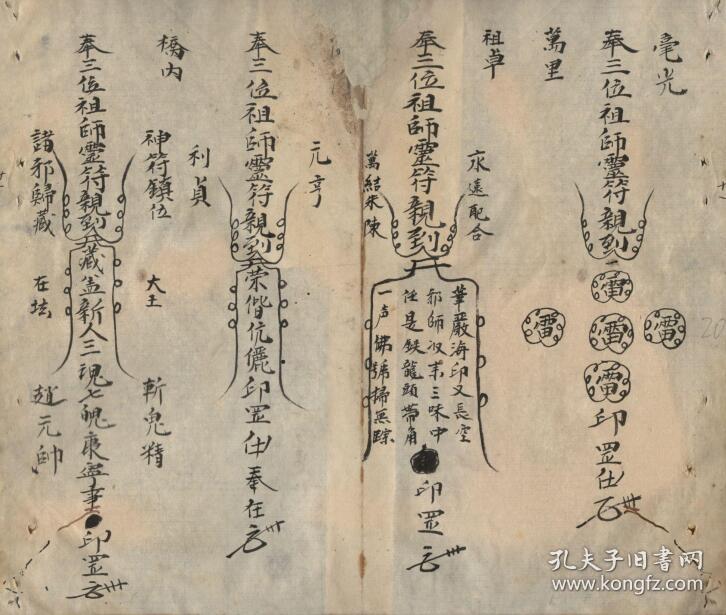 毫光
奉三位祖師靈符親到
雷
雷 雷 雷
雷
印罡
萬里
祖卓
奉三位祖師靈符親到
永遠配合
萬結朱陳
華嚴海印又長空
邪師收來三味中
任是鉄龍頭帶角
一声佛號掃無踪
印罡
元亨
奉三位祖師靈符親到
榮偕伉儷印罡
奉在
利貞
橋內
神符鎮位
大王
斬鬼精
奉三位祖師靈符親到
藏盖新人三魂七魄
印罡
諸邪歸藏
在坛
趙元帥
孔夫子旧书网
www.kongfz.com